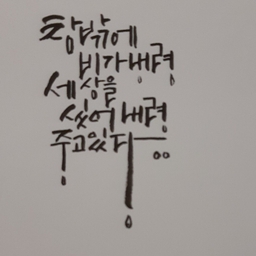 창밖에
비가내령
세상을
씻어내령
주고있다